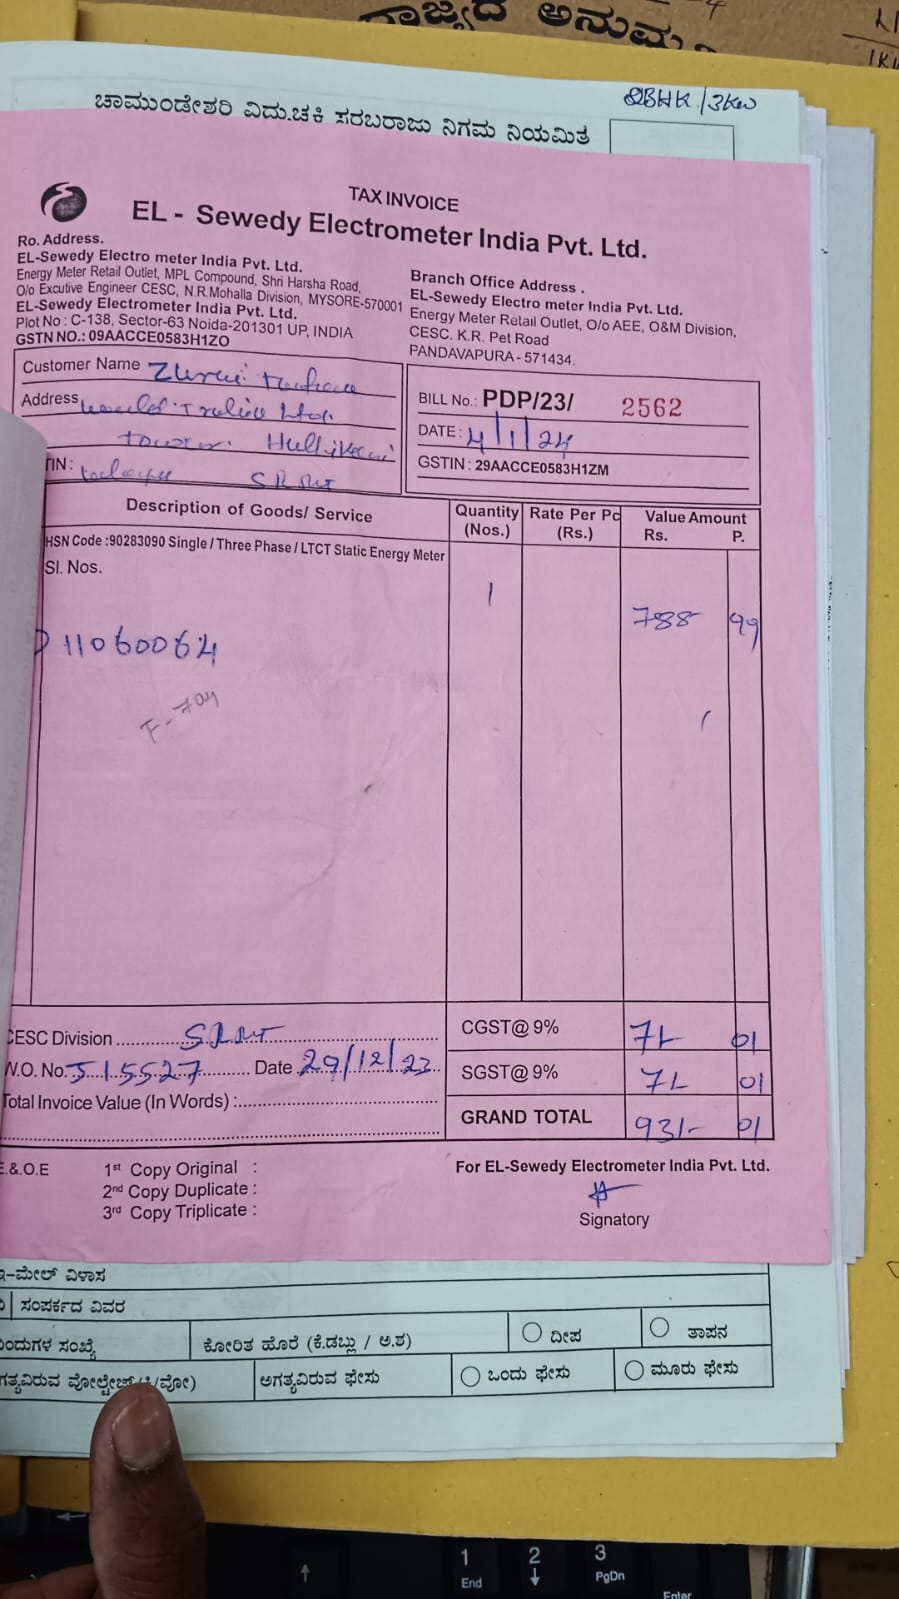 ರಾಜ್ಯದ ಅನುಮ
2BHK/3Kw
ಚಾಮುಂಡೇಶರಿ ವಿದು.ಚಕಿ ಸರಬರಾಜು ನಿಗಮ ನಿಯಮಿತ
TAX INVOICE
EL - Sewedy Electrometer India Pvt. Ltd.
Ro. Address.
EL-Sewedy Electro meter India Pvt. Ltd.
Energy Meter Retail Outlet, MPL Compound, Shri Harsha Road,
O/o Excutive Engineer CESC, N.R.Mohalla Division, MYSORE-570001
EL-Sewedy Electrometer India Pvt. Ltd.
Plot No : C-138, Sector-63 Noida-201301 UP, INDIA
GSTN NO.: 09AACCE0583H1ZO
Branch Office Address .
EL-Sewedy Electro meter India Pvt. Ltd.
Energy Meter Retail Outlet, O/o AEE, O&M Division,
CESC. K.R. Pet Road
PANDAVAPURA - 571434.
Customer Name
Address
TIN :
BILL No.: PDP/23/ 2562
DATE : 4/1/24
GSTIN : 29AACCE0583H1ZM
Description of Goods/ Service Quantity (Nos.) Rate Per Pc (Rs.) Value Amount Rs. P.
HSN Code :90283090 Single / Three Phase / LTCT Static Energy Meter
Sl. Nos.
1 788 99
11060064
F-704
CESC Division SRPT CGST@ 9% 71 01
W.O. No. 515527 Date 29/12/23 SGST@ 9% 71 01
Total Invoice Value (In Words) :
GRAND TOTAL 931- 01
E.&.O.E 1st Copy Original :
2nd Copy Duplicate :
3rd Copy Triplicate :
For EL-Sewedy Electrometer India Pvt. Ltd.
Signatory
ಇ-ಮೇಲ್ ವಿಳಾಸ
ಸಂಪರ್ಕದ ವಿವರ
ಬಿಂದುಗಳ ಸಂಖ್ಯೆ ಕೋರಿತ ಹೊರೆ (ಕೆ.ಡಬ್ಲು / ಅ.ಶ) ದೀಪ ತಾಪನ
ಅಗತ್ಯವಿರುವ ಫೇಸು ಒಂದು ಫೇಸು ಮೂರು ಫೇಸು
1 End 2 3 PgDn
Enter